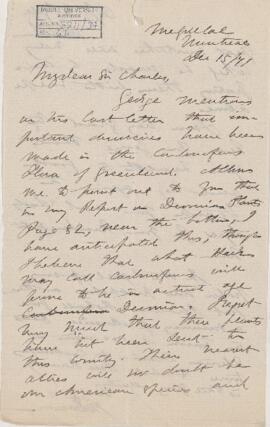 McGILL UNIVERSITY
ARCHIVES
McGill Col
Montreal
Dec 15/71
My dear Sir Charles,
George mentions
in his last letter that im
portant discoveries have been
made in the Carboniferous
Flora of Greenland. Allow
me to point out to you that
in my Report on Devonian Plants
Page 82, near the bottom, I
have anticipated this, though
I believe that what Heer
may call Carboniferous will
prove to be in actual age
Devonian. I regret
very much that these plants
have not been sent to
this country. Their nearest
allies will no doubt be
our American species and